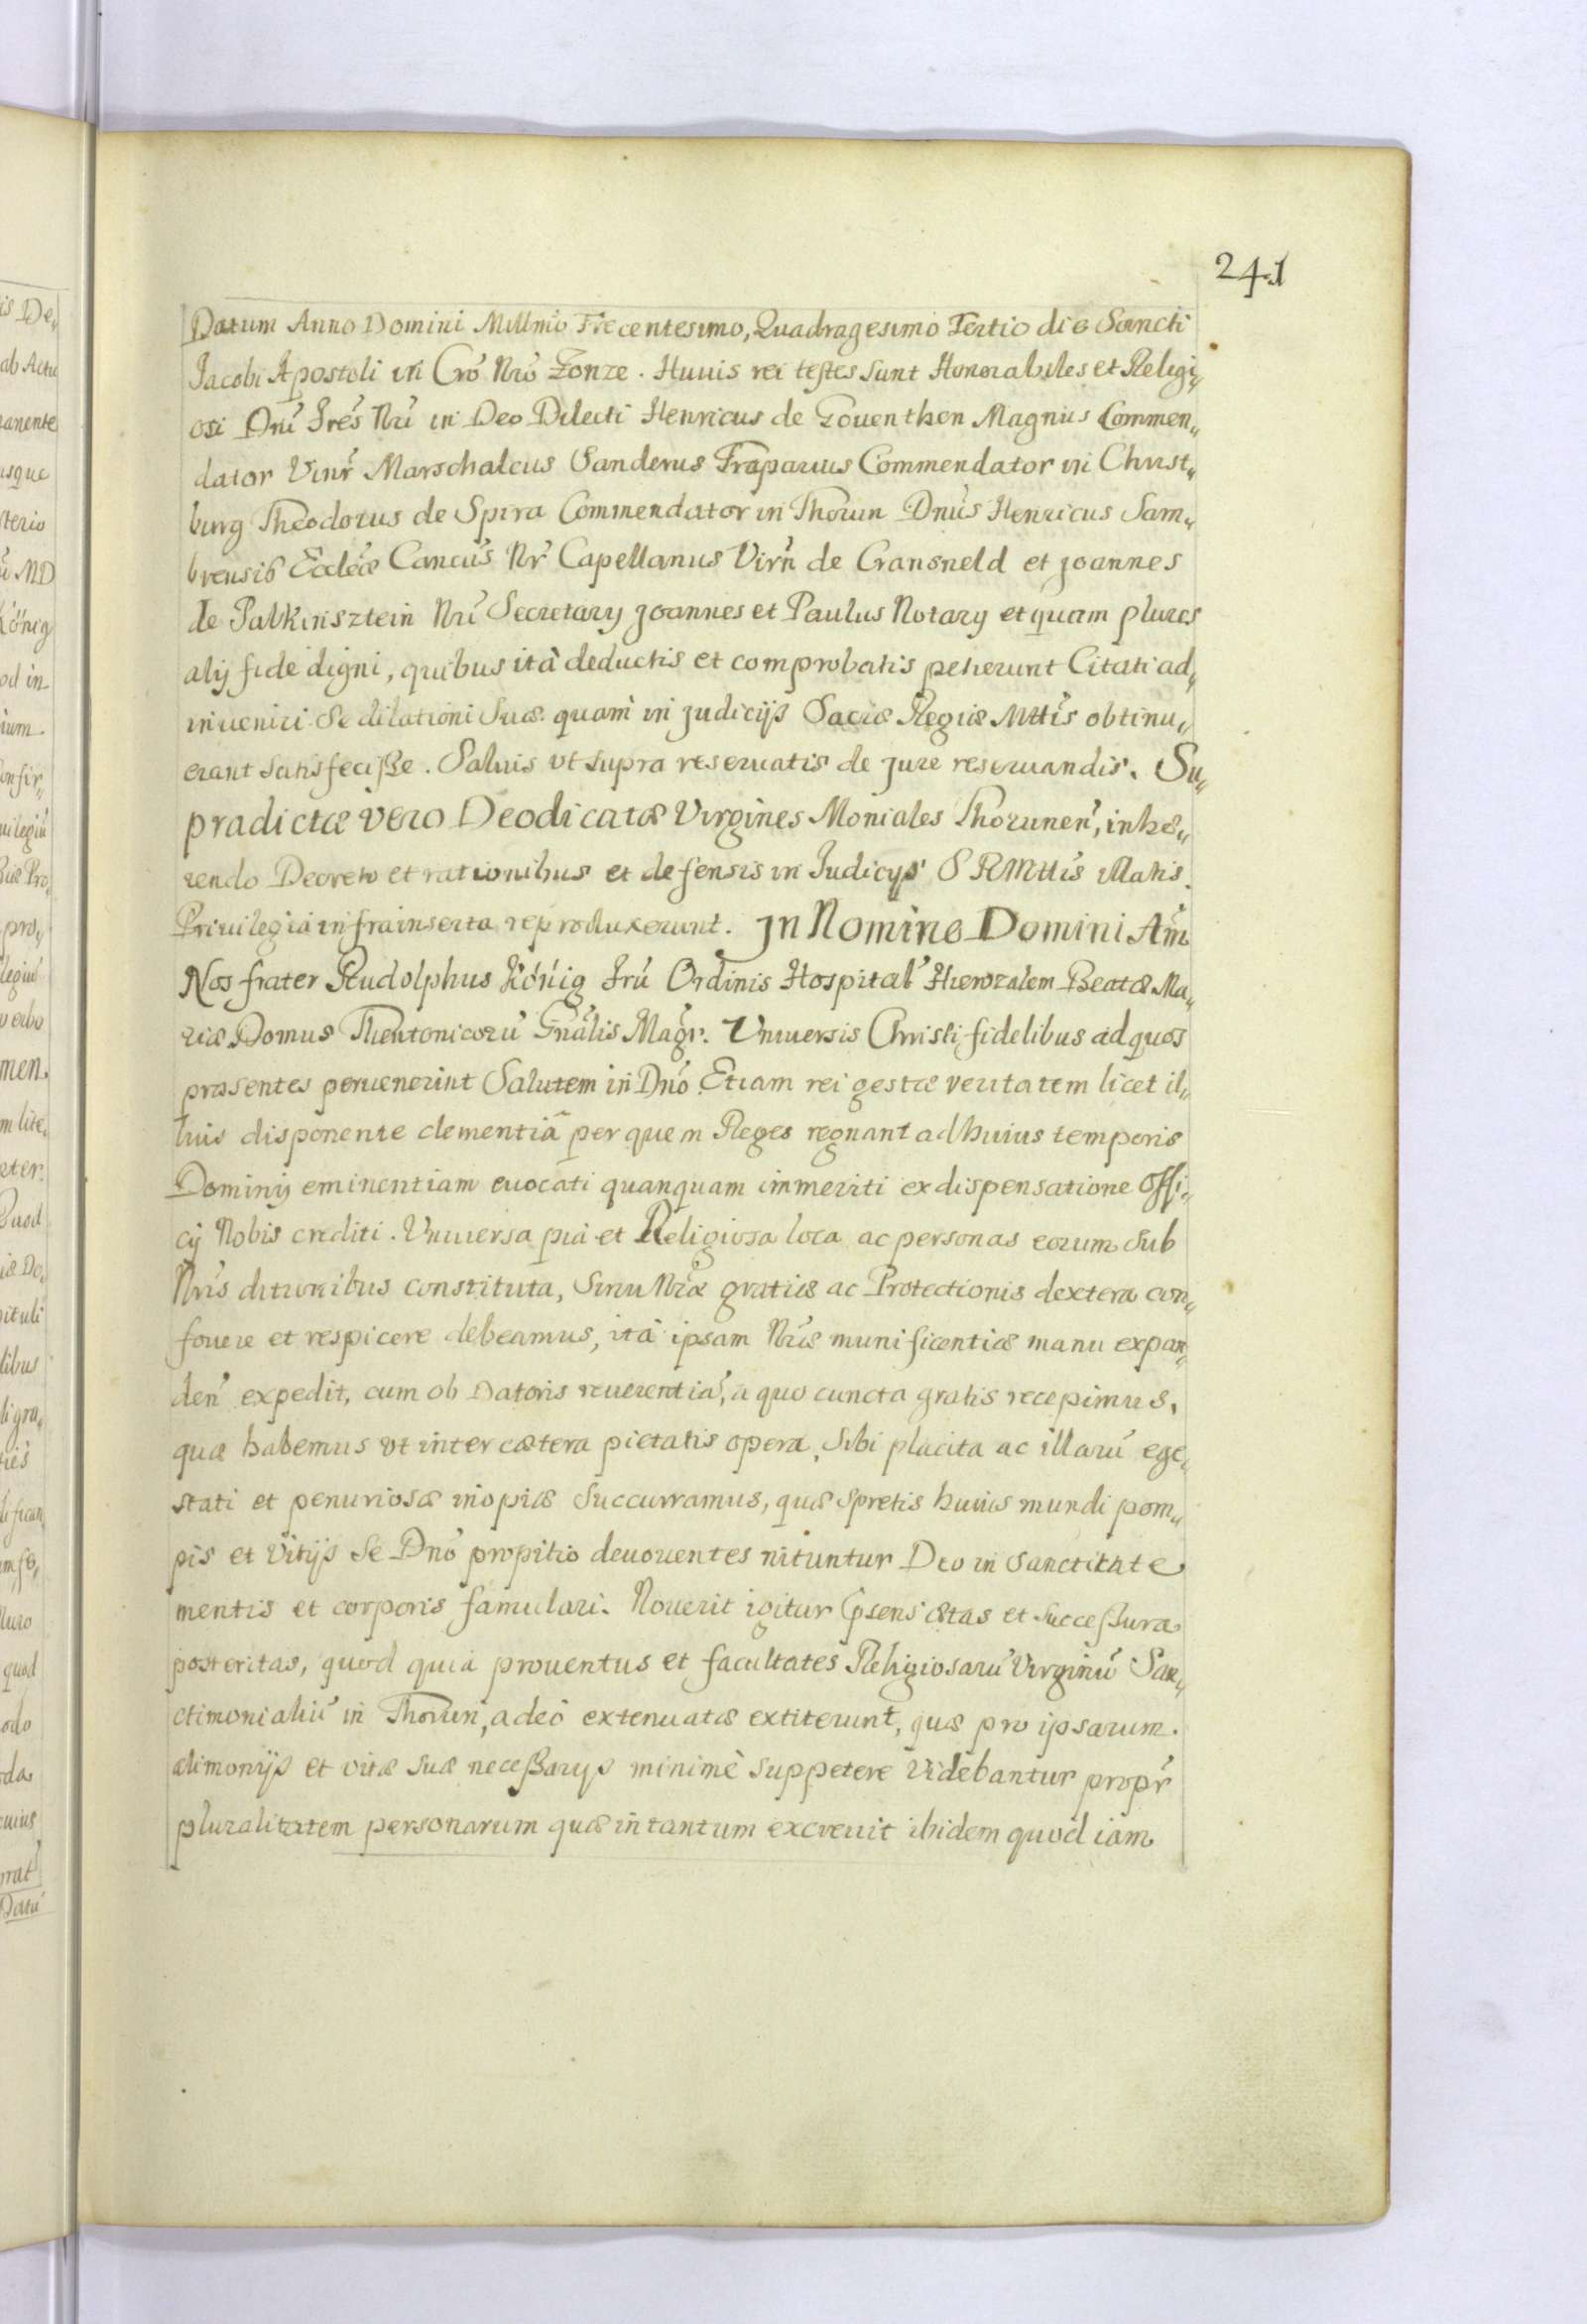 241
Datum Anno Domini Millmo Trecentesimo, Quadragesimo Tertio die Sancti
Jacobi Apostoli in Cro Nro Zonze. Huuis rei testes sunt Honorabiles et Religi„
osi Dni Fres Nri in Deo Dilecti Henricus de Bouenthen Magnus Commen„
dator Vinr Marschalcus Sanderus Traparius Commendator in Christ„
burg Theodorus de Spira Commendator in Thorun Dnus Henricus Sam„
brensis Eccleæ Cancus Nr Capellanus Virn de Cransneld et Joannes
de Falkinsztein Nri Secretary Joannes et Paulus Notary et quam plures
alij fide digni, quibus ità deductis et comprobatis petierunt Citati ad„
inueniri se dilationi suæ quam in judicijs Sacræ Regiæ Mttis obtinu„
erant satisfecisse. Saluis vt supra reseruatis de jure reseruandis. Su„
pradictæ vero Deodicatæ Virgines Moniales Thorunen, inhæ„
rendo Decreto et rationibus et defensis in Judicys S R Mttis illatis.
Priuilegia infra inserta reproduxerunt. In Nomine Domini Am
Nos frater Rudolphus König Fru Ordinis Hospital Hierozalem Beatæ Ma„
riæ Domus Theutonicoru Gnalis Magr. Vniuersis Christi fidelibus ad quos
præsentes peruenerint Salutem in Dno. Etiam rei gestæ veritatem licet il„
luis disponente clementiâ per quem Reges regnant ad huius temporis
Dominij eminentiam euocati quanquam immeriti ex dispensatione Offi„
cij Nobis crediti. Vniuersa pia et Religiosa loca ac personas eorum sub
Nris ditionibus constituta, sinu Nræ gratiæ ac Protectionis dextera con„
fouere et respicere debeamus, ità ipsam Nræ munificentiæ manu expan„
den expedit, cum ob Datoris reuerentia, a quo cuncta gratis recepimus,
quæ habemus vt inter cætera pietatis opera, sibi placita ac illaru ege„
stati et penuriosæ inopiæ succurramus, quæ spretis huius mundi pom„
pis et Vitijs se Dno propitio deuouentes nituntur Deo in sanctitate
mentis et corporis famulari. Nouerit igitur psens ætas et successura
posteritas, quod quia prouentus et facultates Religiosaru Virginu San„
ctimonialiu in Thorun, adeò extenuatæ extiterunt, quæ pro ipsarum
alimonijs et vitæ suæ necessarys minimè suppetere videbantur propr
pluralitatem personarum quæ in tantum excreuit ibidem quod iam